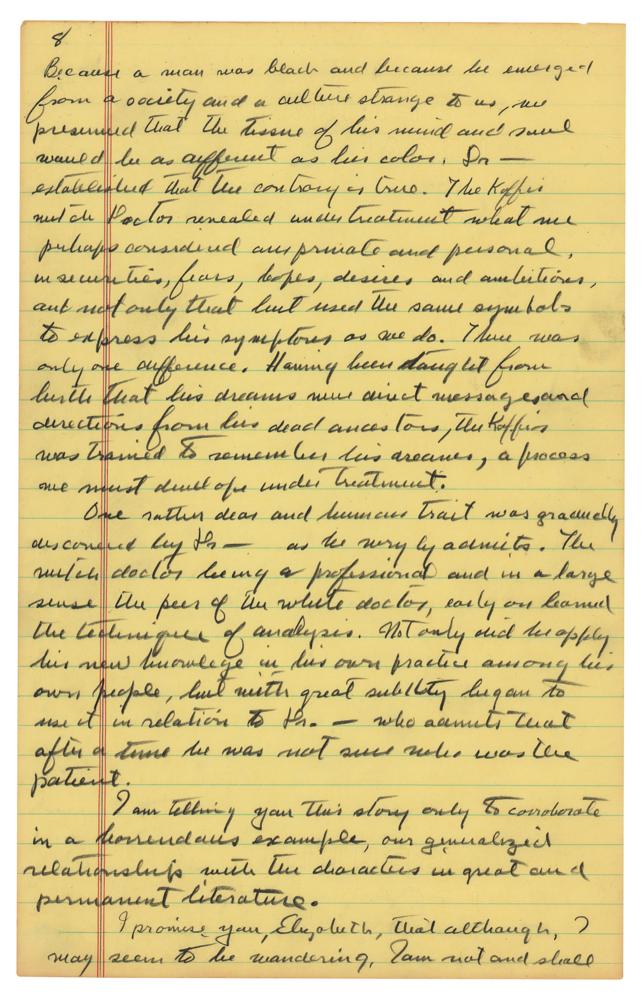 8
Because a man was black and because he emerged
from a society and a culture strange to us, we
presumed that the tissue of his mind and soul
would be as different as his color. Dr —
established that the contrary is true. The Kaffir
witch doctor revealed under treatment what we
perhaps considered our private and personal,
insecurities, fears, hopes, desires and ambitions,
and not only that but used the same symbols
to express his symptoms as we do. There was
only one difference. Having been taught from
birth that his dreams were direct messages and
directions from his dead ancestors, the Kaffir
was trained to remember his dreams, a process
we must develope under treatment.
One rather dear and humous trait was gradually
discovered by Dr — as he wryly admits. The
witch doctor being a professional and in a large
sense the peer of the white doctor, early on learned
the technique of analysis. Not only did he apply
his new knowlege in his own practice among his
own people, but with great subtlty began to
use it in relation to Dr. — who admits that
after a time he was not sure who was the
patient.
I am telling you this story only to corroborate
in a horrendous example, our generalized
relationships with the characters in great and
permanent literature.
I promise you, Elizabeth, that although, I
may seem to be wandering, I am not and shall